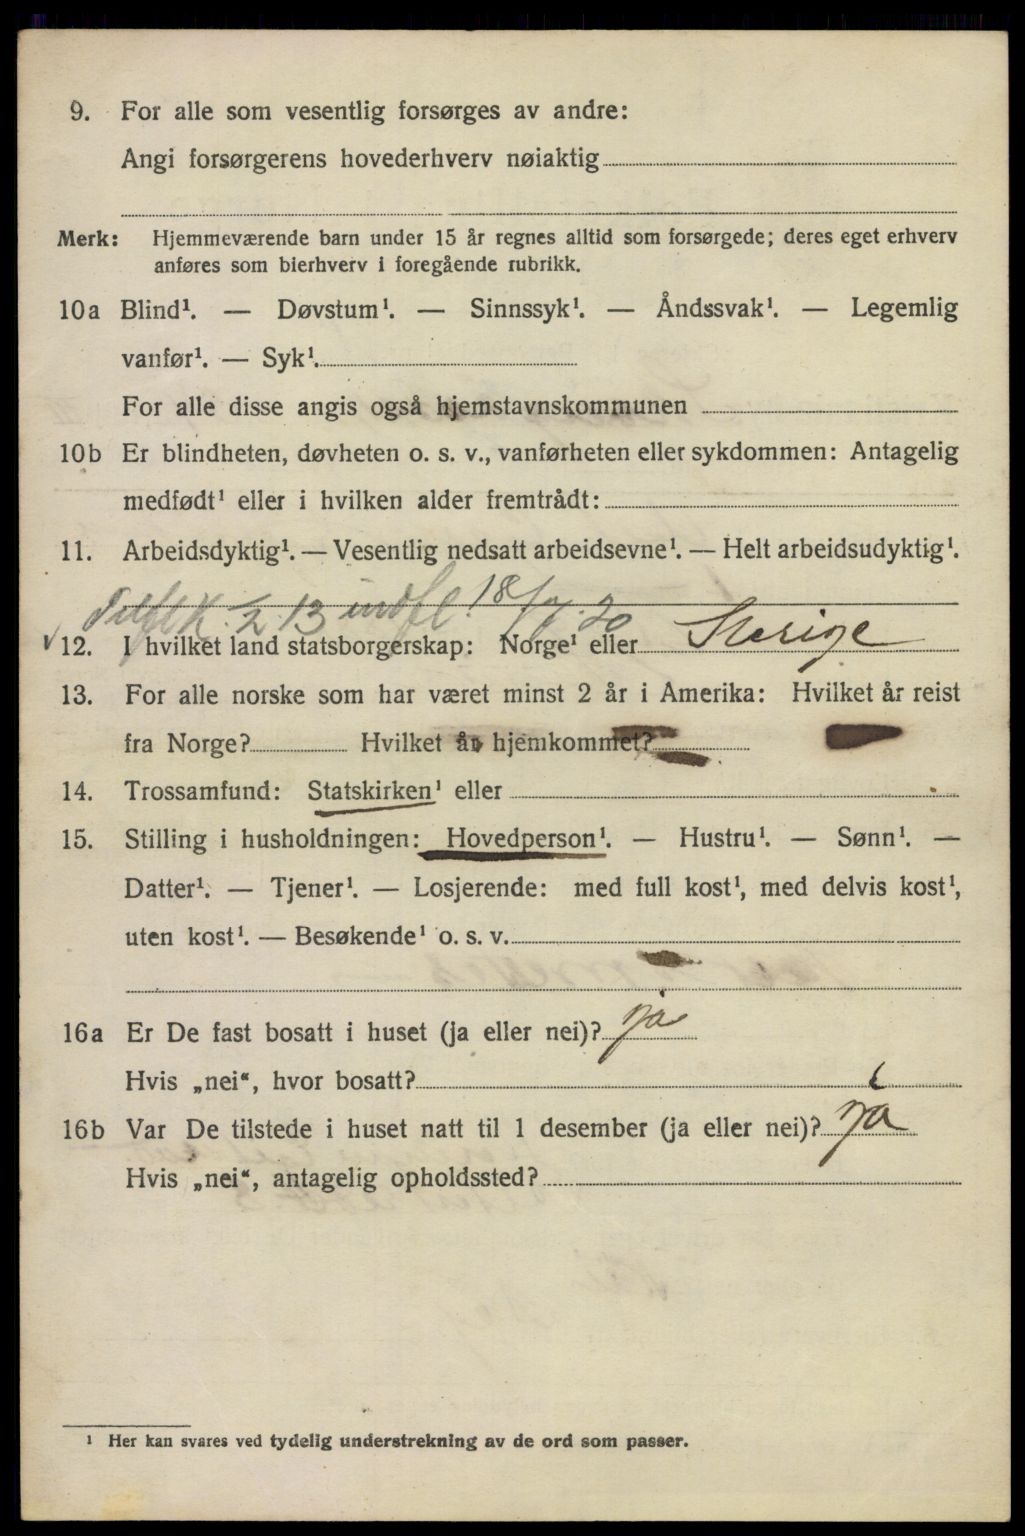 9. For alle som vesentlig forsørges av andre:
Angi forsørgerens hovederhverv nøiaktig
Merk: Hjemmeværende barn under 15 år regnes alltid som forsørgede; deres eget erhverv
anføres som bierhverv i foregående rubrikk.
10a Blind¹. — Døvstum¹. — Sinnssyk¹. — Åndssvak¹. — Legemlig
vanfør¹. — Syk¹.
For alle disse angis også hjemstavnskommunen
10b Er blindheten, døvheten o. s. v., vanførheten eller sykdommen: Antagelig
medfødt¹ eller i hvilken alder fremtrådt:
11. Arbeidsdyktig¹. — Vesentlig nedsatt arbeidsevne¹. — Helt arbeidsudyktig¹.
13 indfl. 20
12. I hvilket land statsborgerskap: Norge¹ eller Sverige
13. For alle norske som har været minst 2 år i Amerika: Hvilket år reist
fra Norge? Hvilket år hjemkommet?
14. Trossamfund: Statskirken¹ eller
15. Stilling i husholdningen: Hovedperson¹. — Hustru¹. — Sønn¹. —
Datter¹. — Tjener¹. — Losjerende: med full kost¹, med delvis kost¹,
uten kost¹. — Besøkende¹ o. s. v.
16a Er De fast bosatt i huset (ja eller nei)? ja
Hvis „nei“, hvor bosatt?
16b Var De tilstede i huset natt til 1 desember (ja eller nei)? ja
Hvis „nei“, antagelig opholdssted?
¹ Her kan svares ved tydelig understrekning av de ord som passer.